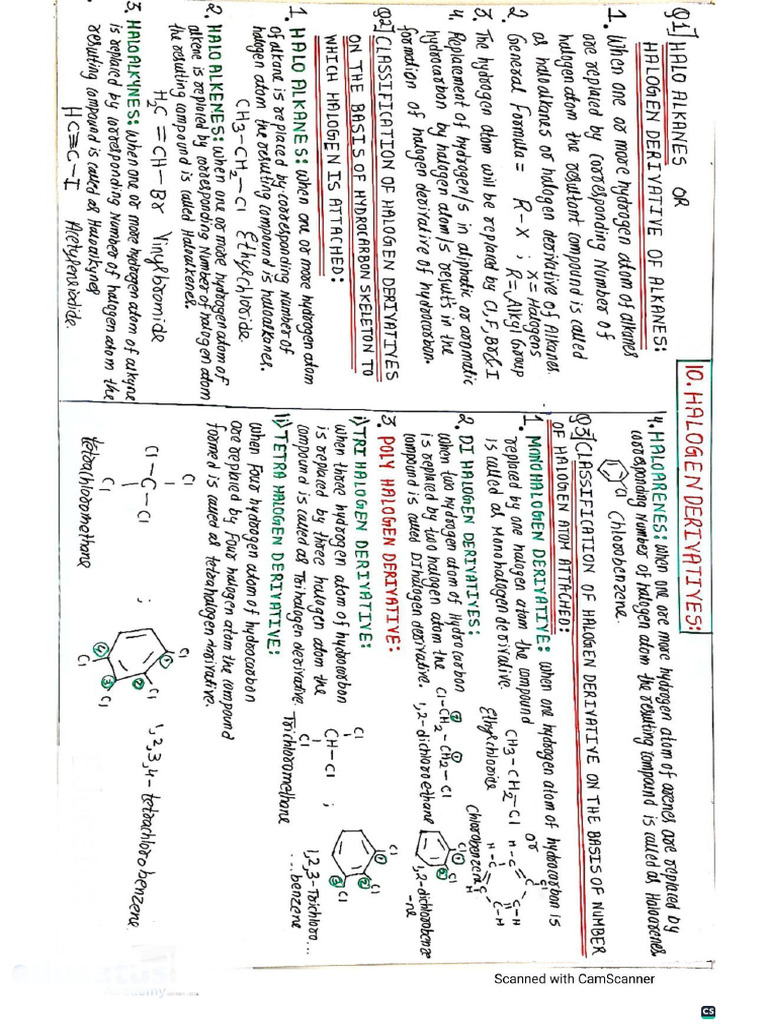 10. HALOGEN DERIVATIVES:
Q1] HALO ALKANES OR
HALOGEN DERIVATIVE OF ALKANES:
1. When one or more hydrogen atom of alkanes
are replaced by corresponding Number of
halogen atom the resultant compound is called
as haloalkanes or halogen derivative of Alkanes.
2. General Formula = R-X ; X=Halogens
R=Alkyl Group
3. The hydrogen atom will be replaced by Cl, F, Br & I
4. Replacement of hydrogen/s in aliphatic or aromatic
hydrocarbon by halogen atom/s results in the
formation of halogen derivative of hydrocarbon.
Q2] CLASSIFICATION OF HALOGEN DERIVATIVES
ON THE BASIS OF HYDROCARBON SKELETON TO
WHICH HALOGEN IS ATTACHED:
1. HALO ALKANES: when one or more hydrogen atom
of alkane is replaced by corresponding number of
halogen atom the resulting compound is haloalkanes.
CH3-CH2-Cl Ethylchloride.
2. HALO ALKENES: when one or more hydrogen atom of
alkene is replaced by corresponding Number of halogen atom
the resulting compound is called Haloalkenes.
H2C=CH-Br Vinylbromide
3. HALOALKYNES: when one or more hydrogen atom of alkyne
is replaced by corresponding Number of halogen atom the
resulting compound is called as Haloalkynes
HC≡C-I Acetyleneiodide.
4. HALOARENES: when one or more hydrogen atom of arenes are replaced by
corresponding Number of halogen atom the resulting compound is called as Haloarenes.
Cl Chlorobenzene.
Q3] CLASSIFICATION OF HALOGEN DERIVATIVE ON THE BASIS OF NUMBER
OF HALOGEN ATOM ATTACHED:
1. MONOHALOGEN DERIVATIVE: when one hydrogen atom of hydrocarbon is
replaced by one halogen atom the compound
is called as Monohalogen derivative.
CH3-CH2-Cl or
Ethylchloride
Chlorobenzene
2. DI HALOGEN DERIVATIVES:
when two hydrogen atom of hydrocarbon
is replaced by two halogen atom the
compound is called Dihalogen derivative.
Cl-CH2-CH2-Cl
1,2-dichloroethane
1,2-dichlorobenze
-ne
3. POLY HALOGEN DERIVATIVE:
i) TRI HALOGEN DERIVATIVE:
when three hydrogen atom of hydrocarbon
is replaced by three halogen atom the
compound is called as Trihalogen derivative.
Cl
CH-Cl ;
Cl
Trichloromethane
1,2,3-Trichloro...
...benzene
ii) TETRA HALOGEN DERIVATIVE:
when Four hydrogen atom of hydrocarbon
are replaced by Four halogen atom the compound
formed is called as tetrahalogen derivative.
Cl
Cl-C-Cl ;
Cl
tetrachloromethane
1,2,3,4-tetrachlorobenzene.
Scanned with CamScanner
CS